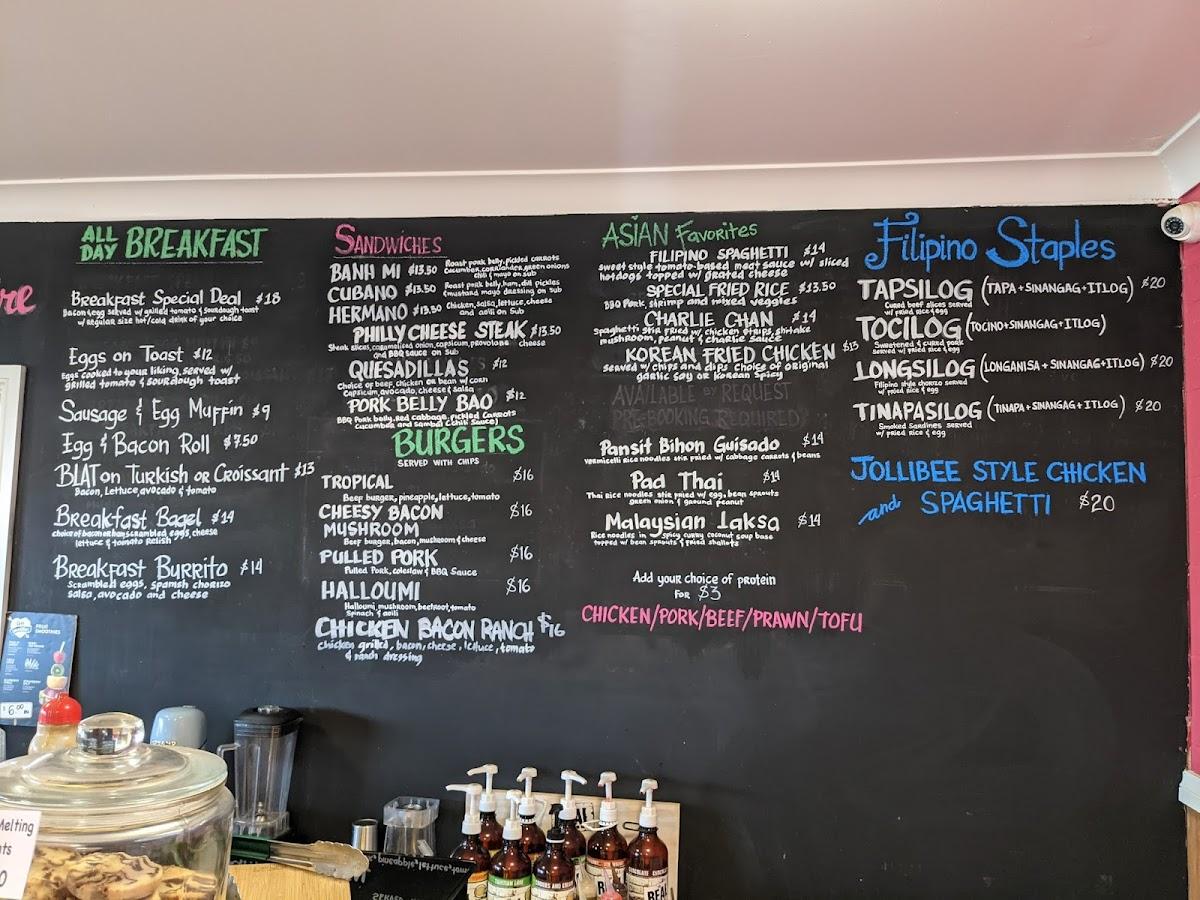 ALL DAY BREAKFAST
Breakfast Special Deal $18
Bacon & egg served w/ grilled tomato & sourdough toast
w/ Regular size hot/cold drink of your choice
Eggs on Toast $12
Eggs cooked to your liking, served w/
grilled tomato & sourdough toast
Sausage & Egg Muffin $9
Egg & Bacon Roll $7.50
BLAT on Turkish or Croissant $13
Bacon, Lettuce, avocado & tomato
Breakfast Bagel $14
choice of bacon or ham, scrambled eggs, cheese
lettuce & tomato relish
Breakfast Burrito $14
Scrambled eggs, spanish chorizo
salsa, avocado and cheese
SANDWICHES
BANH MI $13.50
Roast pork belly, pickled carrots
cucumber, corriander, green onions
chili & mayo on sub
CUBANO $13.50
Roast pork belly, ham, dill pickles
& mustard mayo dressing on Sub
HERMANO $13.50
Chicken, salsa, lettuce, cheese
and aoili on Sub
PHILLY CHEESE STEAK $13.50
Steak slices, caramelised onion, capsicum, provolone cheese
and BBQ sauce on Sub
QUESADILLAS $12
Choice of beef, chicken or bean w/ corn
capsicum, avocado, cheese & salsa
PORK BELLY BAO $12
BBQ Pork belly, red cabbage, pickled carrots
cucumber and sambal (chili sauce)
BURGERS
SERVED WITH CHIPS
TROPICAL $16
Beef burger, pineapple, lettuce, tomato
CHEESY BACON $16
MUSHROOM
Beef burger, bacon, mushroom & cheese
PULLED PORK $16
Pulled Pork, coleslaw & BBQ Sauce
HALLOUMI $16
Halloumi, mushroom, beetroot, tomato
Spinach & aoili
CHICKEN BACON RANCH $16
chicken grilled, bacon, cheese, lettuce, tomato
& ranch dressing
ASIAN Favorites
FILIPINO SPAGHETTI $14
sweet style tomato-based meat sauce w/ sliced
hotdogs topped w/ grated cheese
SPECIAL FRIED RICE $13.50
BBQ Pork, shrimp and mixed veggies
CHARLIE CHAN $14
Spaghetti stir fried w/ chicken strips, shitake
mushroom, peanut & charlie sauce
KOREAN FRIED CHICKEN $13
served w/ chips and dips choice of original
garlic soy or Korean Spicy
AVAILABLE BY REQUEST
PRE-BOOKING REQUIRED
Pansit Bihon Guisado $14
vermicelli rice noodles stir fried w/ cabbage carrots & beans
Pad Thai $14
Thai rice noodles stir fried w/ egg, bean sprouts
green onion & ground peanut
Malaysian Laksa $14
Rice noodles in spicy curry coconut soup base
topped w/ bean sprouts & fried shallots
Add your choice of protein
FOR $3
CHICKEN/PORK/BEEF/PRAWN/TOFU
Filipino Staples
TAPSILOG (TAPA+SINANGAG+ITLOG) $20
Cured beef slices served
w/ fried rice & egg
TOCILOG (TOCINO+SINANGAG+ITLOG)
Sweetened & cured pork
served w/ fried rice & egg
LONGSILOG (LONGANISA+SINANGAG+ITLOG) $20
Filipino style chorizo served
w/ fried rice & egg
TINAPASILOG (TINAPA+SINANGAG+ITLOG) $20
Smoked Sardines served
w/ fried rice & egg
JOLLIBEE STYLE CHICKEN
and SPAGHETTI $20
FRUIT
SMOOTHIES
$6.00
Melting